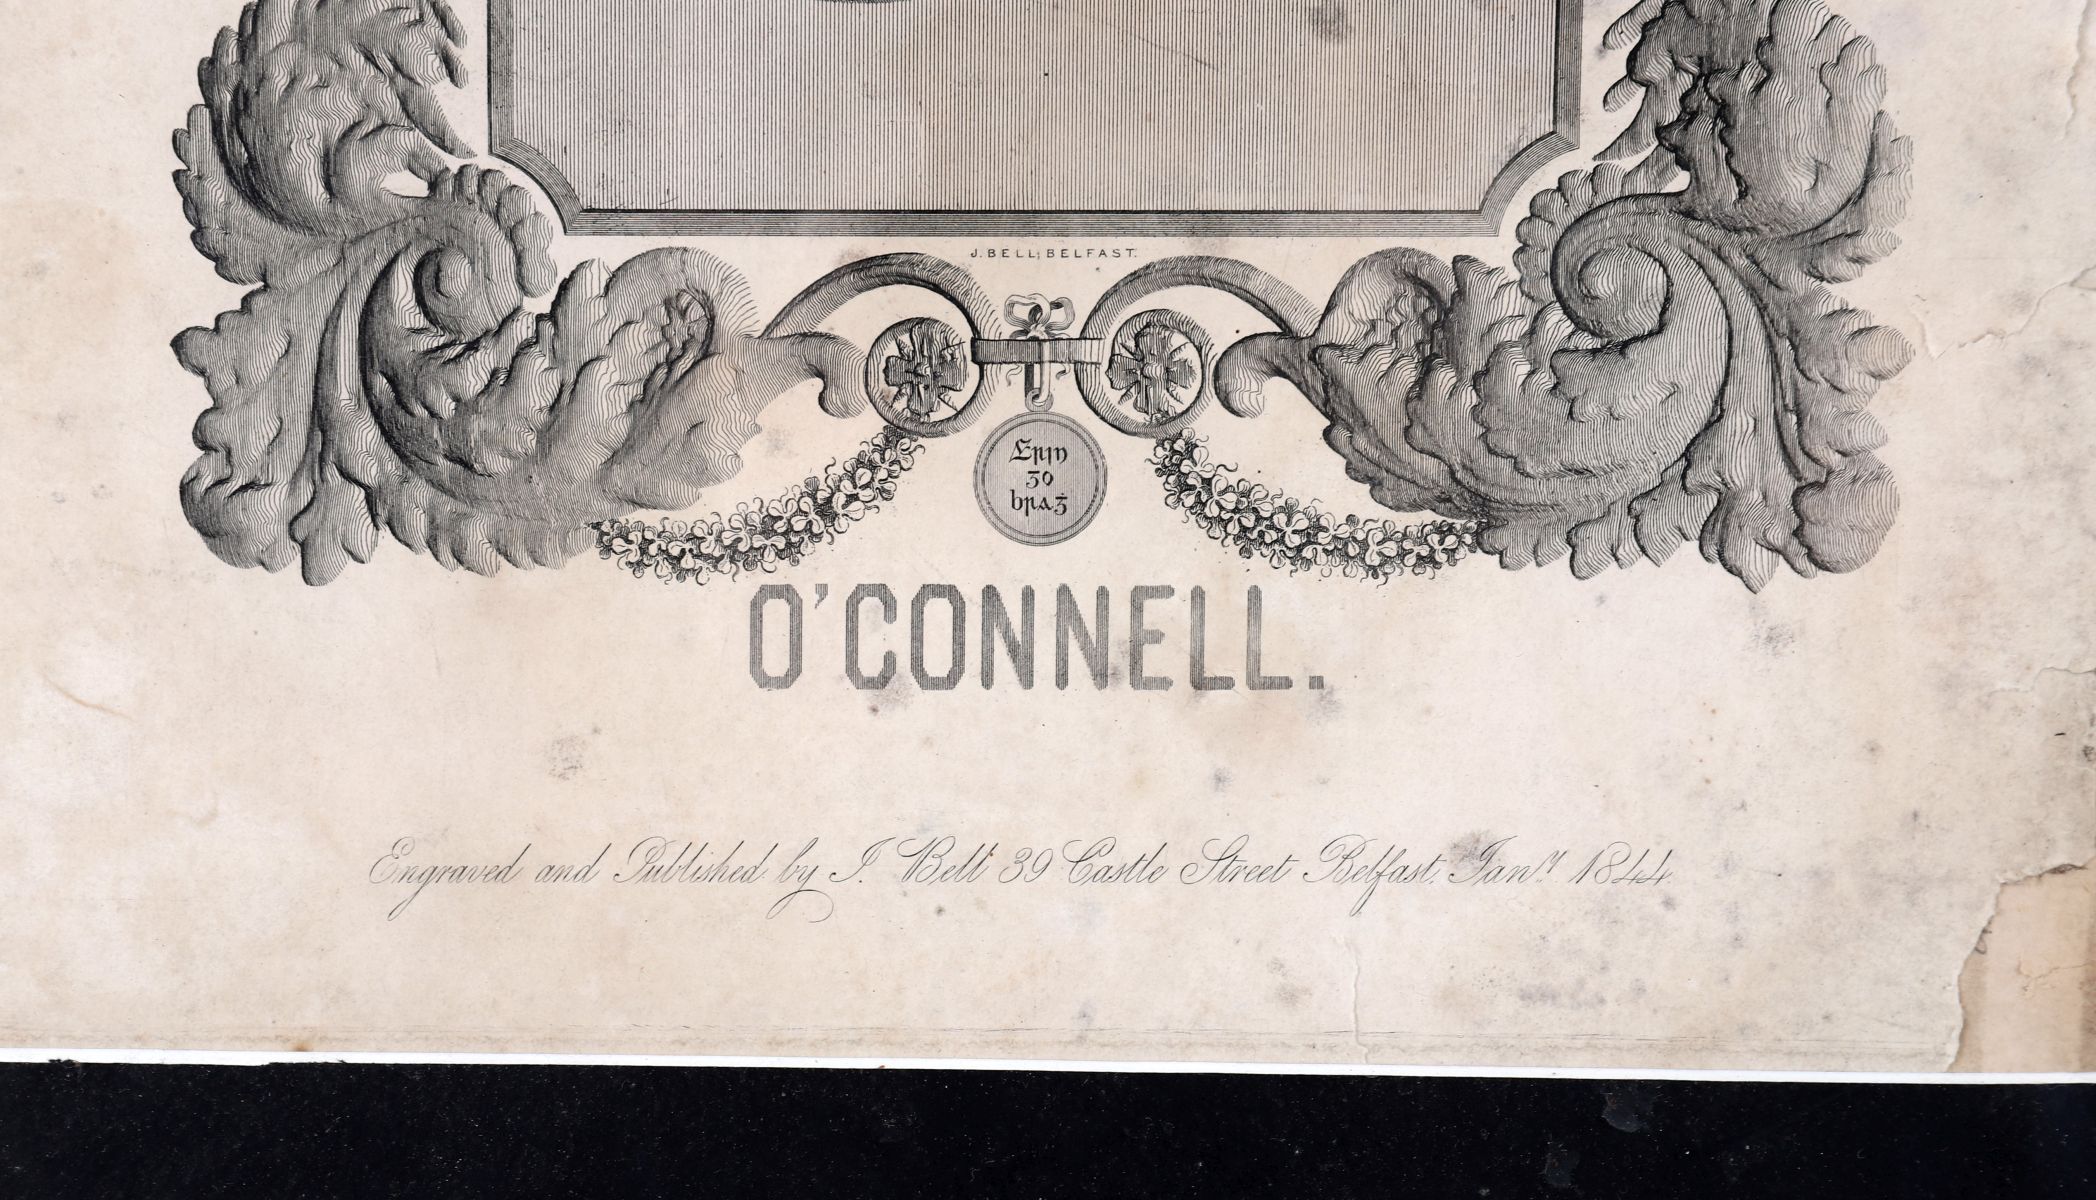 J. BELL, BELFAST.
Erin
go
brag
O'CONNELL.
Engraved and Published by J. Bell 39 Castle Street Belfast. Jany. 1844.